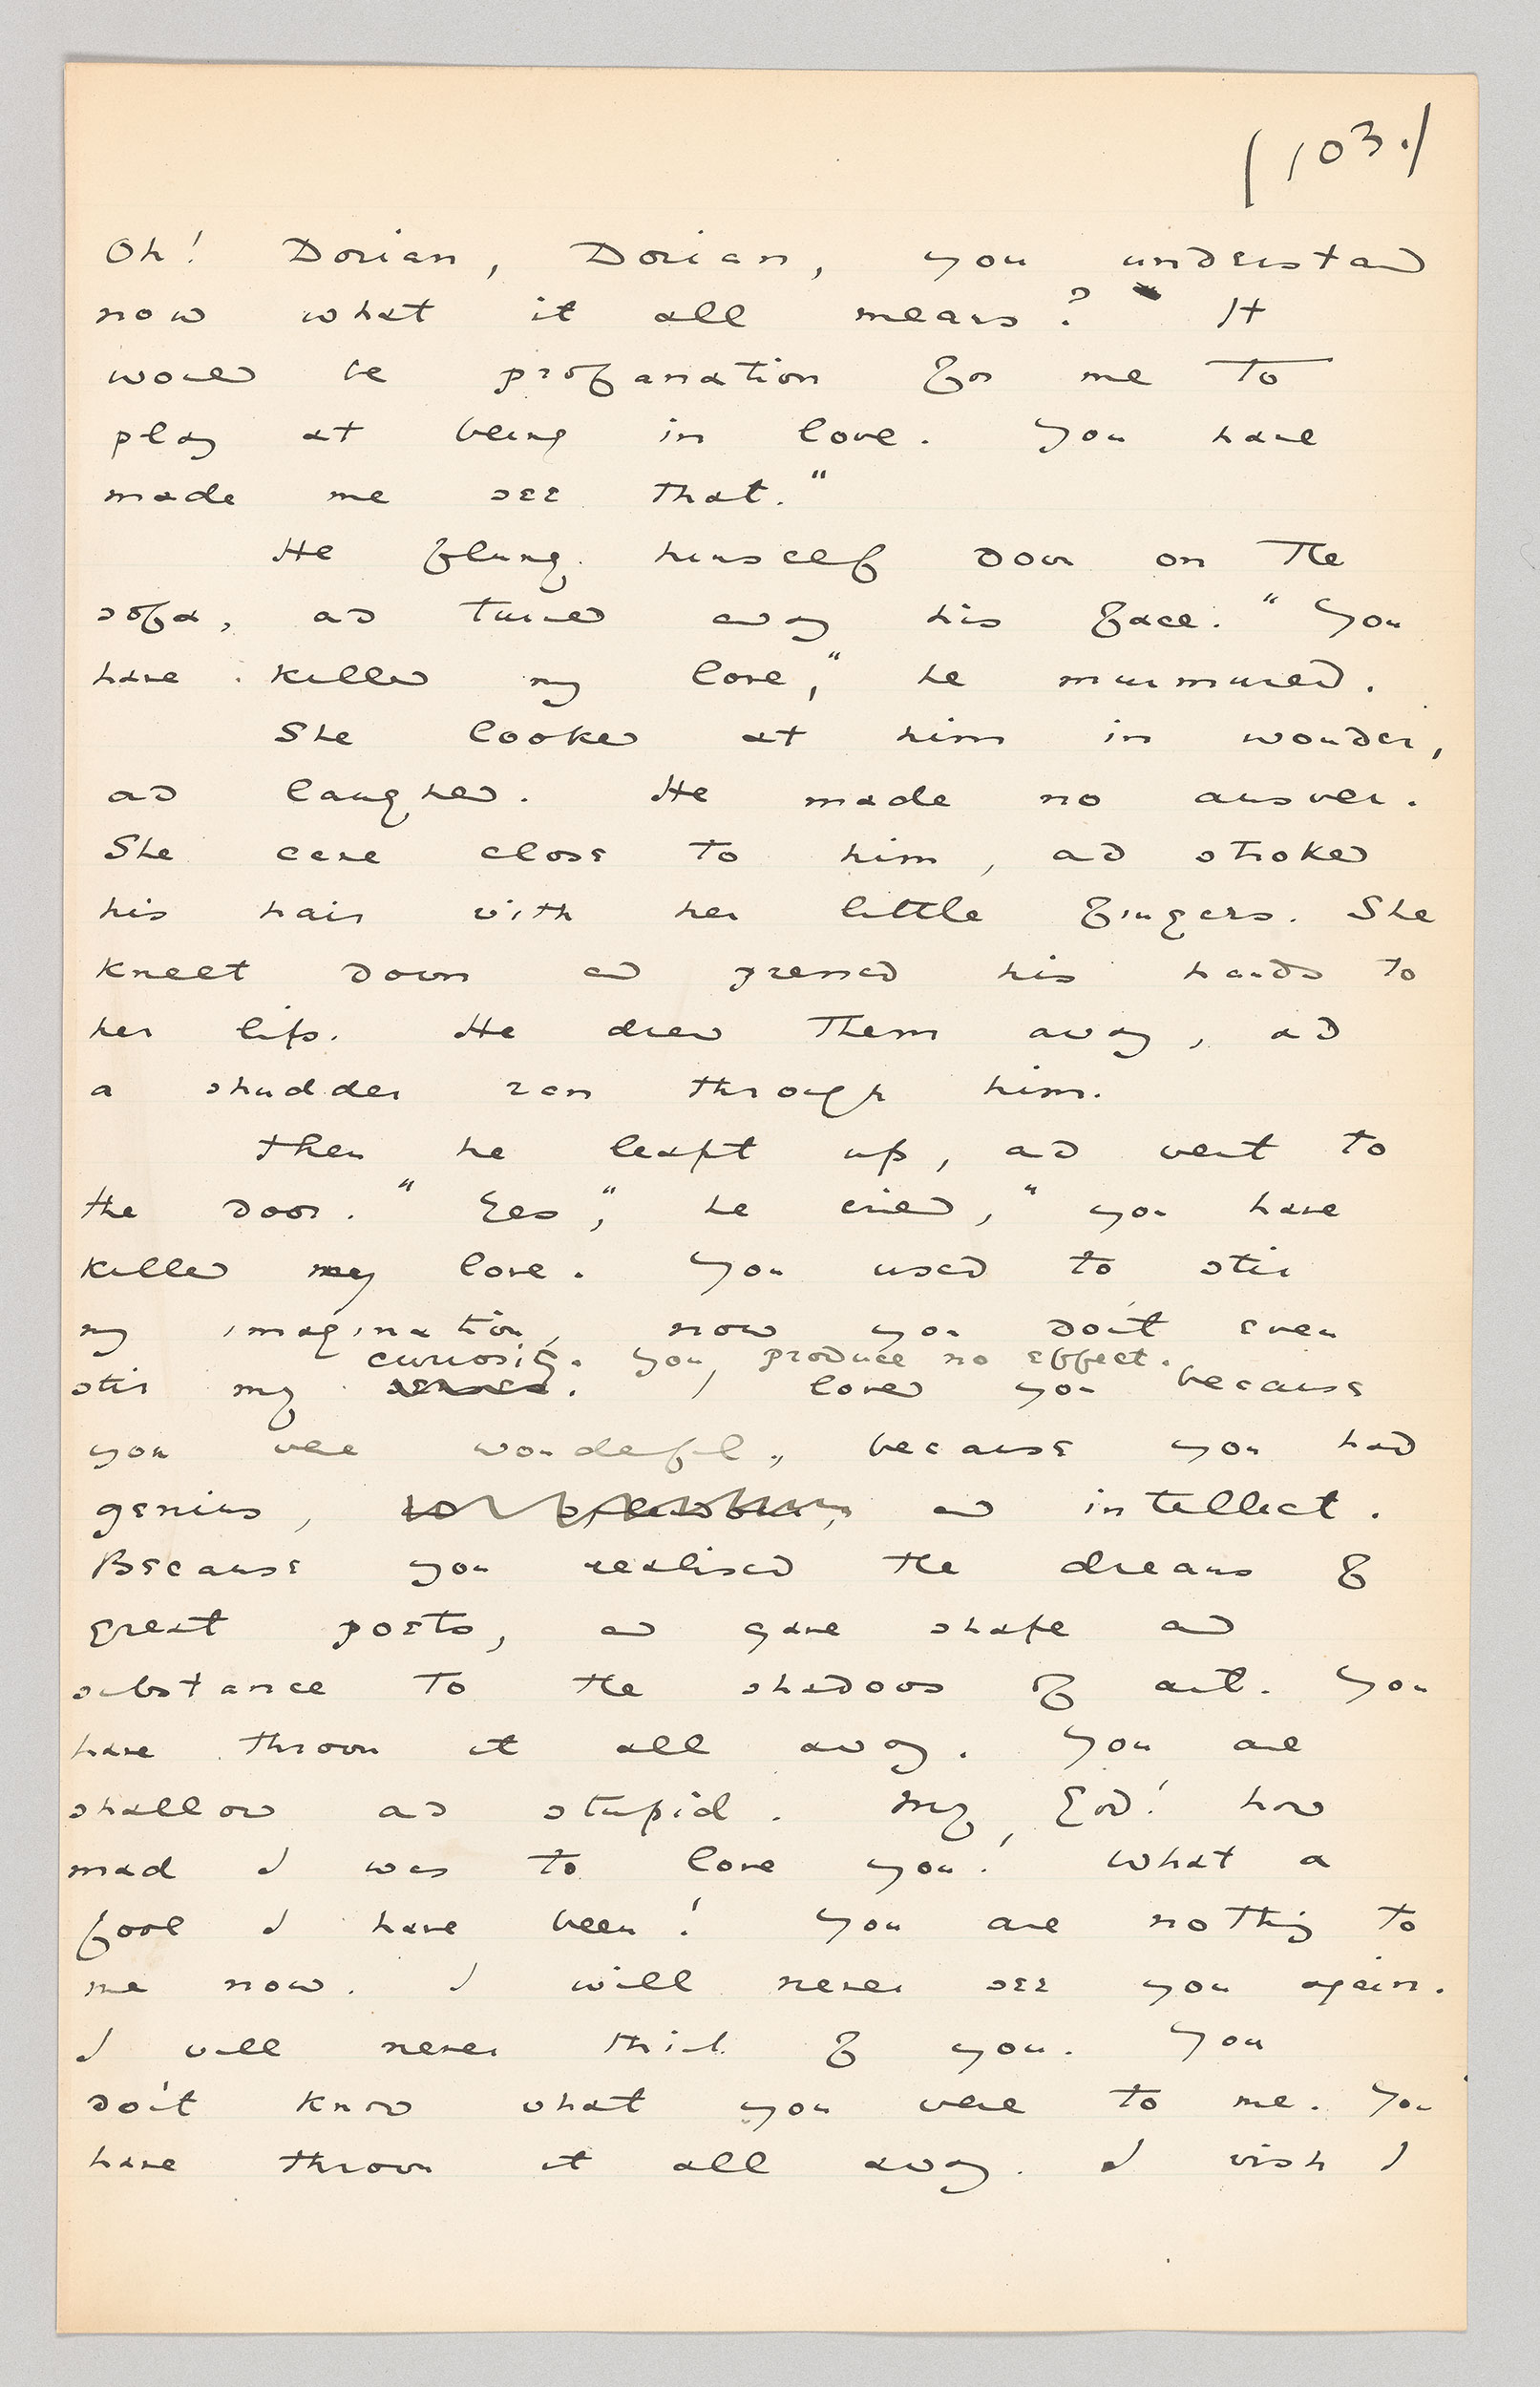 (103.)
Oh! Dorian, Dorian, you understand
now what it all means? It
would be profanation for me to
play at being in love. You have
made me see that."
He flung himself down on the
sofa, and turned away his face. "You
have killed my love," he murmured.
She looked at him in wonder,
and laughed. He made no answer.
She came close to him, and stroked
his hair with her little fingers. She
knelt down and pressed his hands to
her lips. He drew them away, and
a shudder ran through him.
Then he leapt up, and went to
the door. "Yes," he cried, "you have
killed my love. You used to stir
my imagination, now you don't even
curiosity. You produce no effect.
stir my senses. I loved you because
you were wonderful, because you had
genius, and intellect.
Because you realised the dreams of
great poets, and gave shape and
substance to the shadows of art. You
have thrown it all away. You are
shallow and stupid. My God! how
mad I was to love you! What a
fool I have been! You are nothing to
me now. I will never see you again.
I will never think of you. You
don't know what you were to me. You
have thrown it all away. I wish I